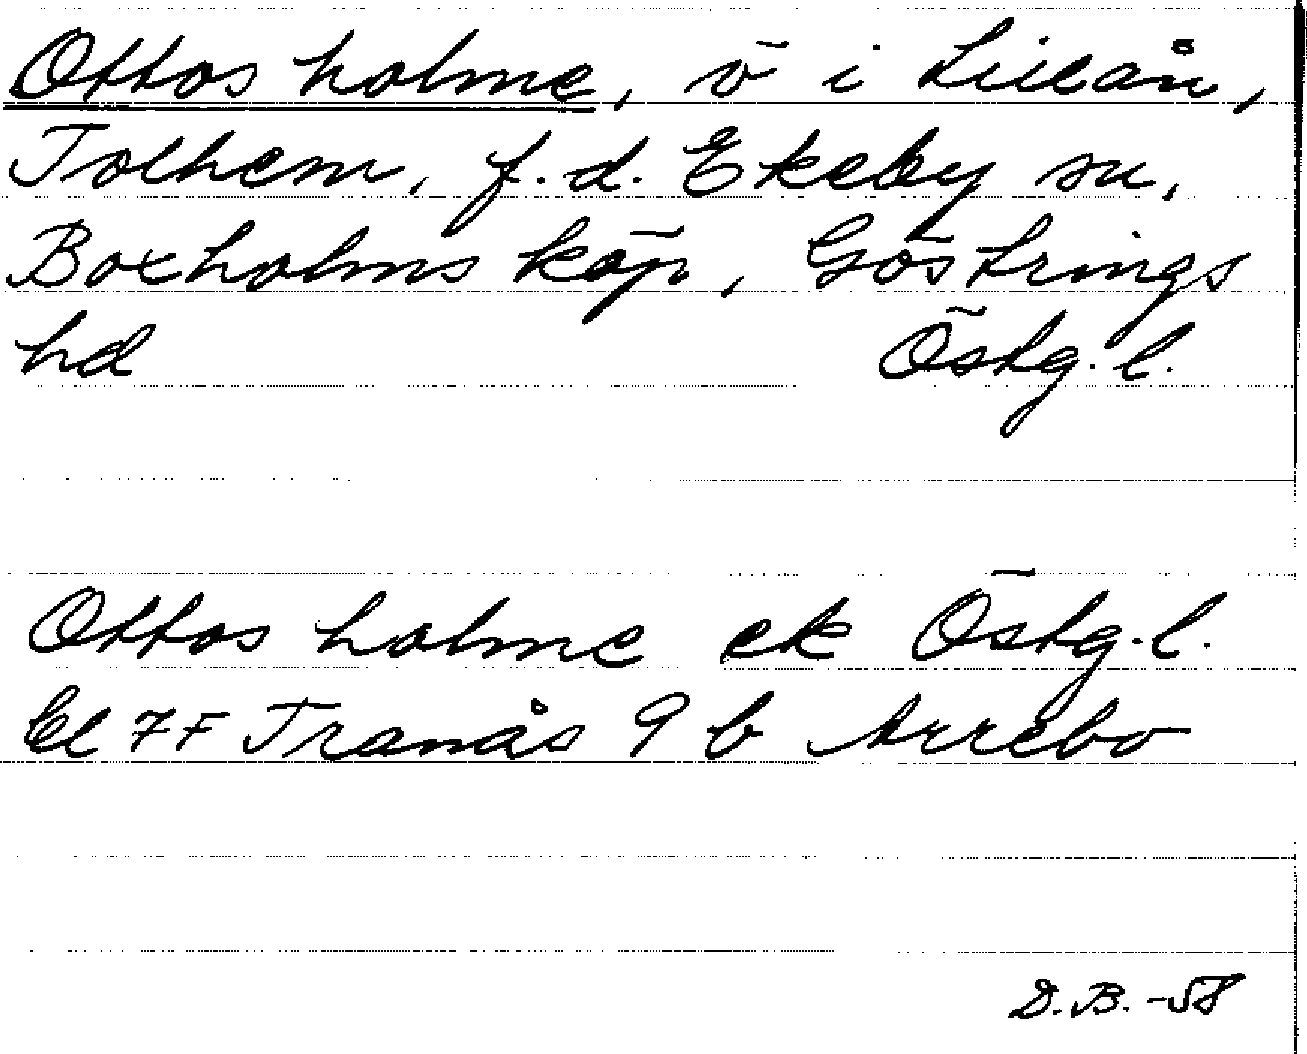 Ottos holme, ö i Lillån,
Tolhem, f.d. Ekeby sn,
Boxholms köp, Göstrings
hd Östg.l.
Ottos holme ek Östg.l.
El 7F Tranås 9 b Arrebo
D.B. -58